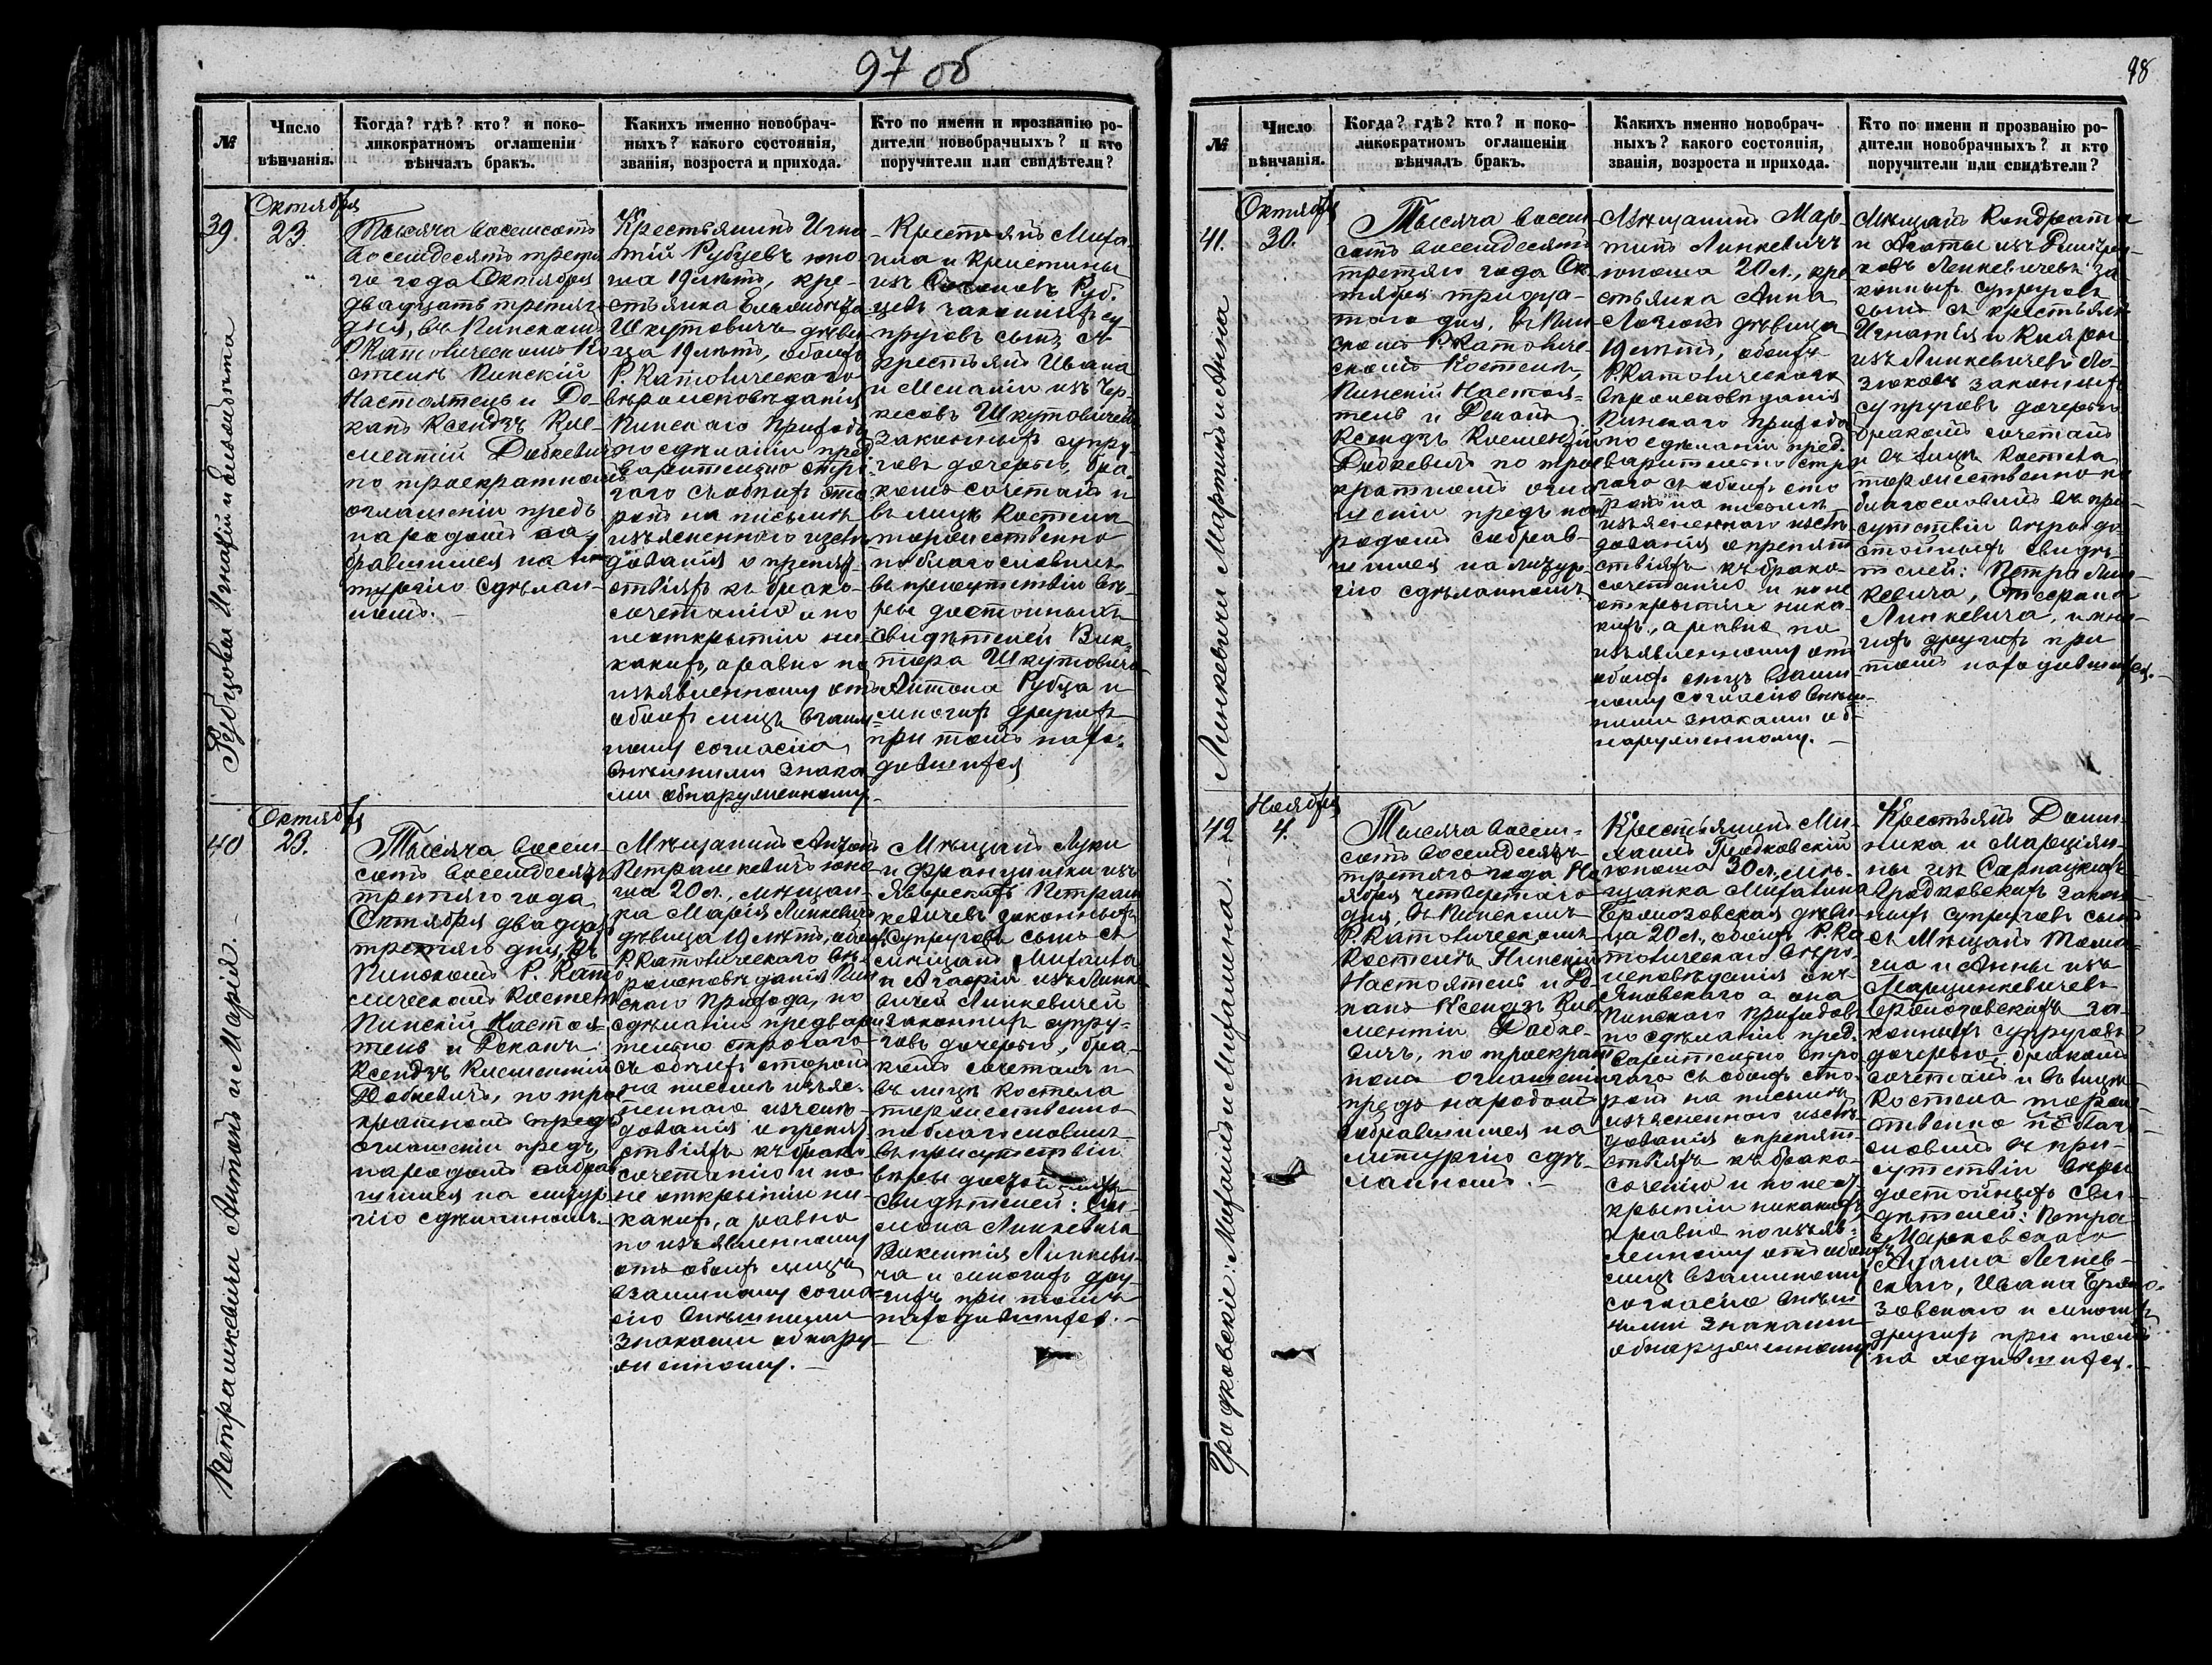 97 об
№
Число
вѣнчанія.
Когда? гдѣ? кто? и поко-
ликократномъ оглашеніи
вѣнчалъ бракъ.
Какихъ именно новобрач-
ныхъ? какого состоянія,
званія, возроста и прихода.
Кто по имени и прозванію ро-
дители новобрачныхъ? и кто
поручители или свидѣтели?
39.
Рубцовы Игнатій и
Октября
23.
Тысяча восемьсотъ
восемдесятъ третья
го года Октября
двадцать третяго
дня, въ Пинскомъ
Р. Католическомъ Ко
стелѣ Пинскій
Настоятель и Де-
канъ Ксендзъ Кле-
ментій Добкевичъ
по троекратномъ
оглашеніи предъ
народомъ со-
бравшимся на ли-
тургію сдѣлан-
номъ.
Крестьянинъ Игна-
тій Рубцевъ юно-
ша 19 лѣтъ, кре-
стьянка
Шкутовичъ дѣви-
ца 19 лѣтъ, обоихъ
Р. Католическаго
вѣроисповѣданія
Пинскаго Прихода
по сдѣланіи пред
варительно стро
гаго съ обоихъ сто
ронъ на письмѣ
изъясненнаго изслѣ
дованія о препят-
ствіяхъ къ брако-
сочетанію и по
неоткрытіи ни-
какихъ, а равно по
изъявленному отъ
обоихъ лицъ взаим-
ному согласію
внѣшними знака
ми обнаруженному.
Крестьянъ Миха-
ила и Кристины
изъ Руб.
цевъ законныхъ су-
пруговъ сынъ съ
крестьянъ Ивана
и Меланіи изъ Чер-
кесовъ Шкутовичей
законныхъ супру-
говъ дочерью, бра-
комъ сочеталъ и
въ лицѣ Костела
торжественно
поблагословилъ
въ присутствіи вѣ-
ры достойныхъ
свидѣтелей Вик-
тора Шкутовича
Антона Рубца и
многихъ другихъ
при томъ нахо-
дившихся
40
Петрашкевичи Антонъ и Марія.
Октября
23.
Тысяча восем-
сотъ восемдесятъ
третяго года
Октября двадцать
третяго дня, въ
Пинскомъ Р. Като
лическомъ Костелѣ
Пинскій Настоя-
тель и Деканъ
Ксендзъ Клементій
Добкевичъ, по трое
кратномъ предъ
оглашеніи предъ
народомъ собрав
шимся на литур-
гію сдѣланномъ.
Мѣщанинъ Антонъ
Петрашкевичъ юно
ша 20 л., мѣщан-
ка Марія Линкевичъ
дѣвица 19 лѣтъ, обоихъ
Р. Католическаго вѣ-
роисповѣданія Пин
скаго Прихода, по
сдѣланіи предвари
тельно строгаго
съ обоихъ сторонъ
на письмѣ изъяс-
неннаго изслѣ-
дованія о препят
ствіяхъ къ брако
сочетанію и по
не открытіи ни-
какихъ, а равно
по изъявленному
отъ обоихъ лицъ
взаимному согла-
сію внѣшними
знаками обнару-
женному.
Мѣщанъ Луки
и Францишки изъ
Яворскихъ Петраш
кевичевъ законныхъ
супруговъ сынъ съ
мѣщанъ Михаила
и Агафіи изъ Линке
вичей Линкевичей
законныхъ супру-
говъ дочерью, бра-
комъ сочеталъ и
въ лицѣ костела
торжественно
поблагословилъ
въ присутствіи
вѣры достойныхъ
свидѣтелей: Си-
мона Линкевича
Викентія Линкеви-
ча и многихъ дру-
гихъ при томъ
находившихся.
98
№
Число
вѣнчанія.
Когда? гдѣ? кто? и поко-
ликократномъ оглашеніи
вѣнчалъ бракъ.
Какихъ именно новобрач-
ныхъ? какого состоянія,
званія, возроста и прихода.
Кто по имени и прозванію ро-
дители новобрачныхъ? и кто
поручители или свидѣтели?
41.
Линкевичи Мартинъ и Анна
Октября
30.
Тысяча восем
сотъ восемдесятъ
третяго года Ок
тября тридца-
таго дня, въ Пин
скомъ Р. Католиче-
скомъ Костелѣ,
Пинскій Настоя-
тель и Деканъ
Ксендзъ Клементій
Добкевичъ по трое
кратномъ огла
шеніи предъ на
родомъ собрав-
шимся на литур-
гію сдѣланномъ
Мѣщанинъ Мар-
тинъ Линкевичъ
юноша 20 л., кре
стьянка Анна
Лозюкъ дѣвица
19 лѣтъ, обоихъ
Р. Католическаго
вѣроисповѣданія
Пинскаго Прихода
по сдѣланіи пред-
варительно стро
гаго съ обоихъ сто
ронъ на письмѣ
изъясненнаго изслѣ-
дованія о препят
ствіяхъ къ брако-
сочетанію и по не
открытіи ника-
кихъ, а равно по
изъявленному отъ
обоихъ лицъ взаим
ному согласію внѣш-
ними знаками об-
наруженному.
Мѣщанъ Кондрата
и Агаты изъ
Линкевичевъ за
конныхъ супруговъ
сынъ съ крестьянъ
Игнатія и Клары
изъ Линкевичевъ Ло-
зюковъ законныхъ
супруговъ дочерью
бракомъ сочеталъ
и въ лицѣ Костела
торжественно по
благословилъ въ при-
сутствіи вѣры до-
стойныхъ свидѣ-
телей: Петра Лин-
кевича,
Линкевича, и мно-
гихъ другихъ при
томъ находившихся.
42
Гродковскіе: Михаилъ и Михалина.
Ноября
4.
Тысяча восем-
сотъ восемдесятъ
третяго года Но
ября четвертаго
дня, въ Пинскомъ
Р. Католическомъ
Костелѣ Пинскій
Настоятель и Де
канъ Ксендзъ Кле
ментій Добке-
вичъ, по троекрат
номъ оглашеніи
предъ народомъ
собравшимся на
литургію сдѣ-
ланномъ.
Крестьянинъ Ми-
хаилъ Гродковскій
юноша 30 л., мѣ-
щанка Михалина
дѣви-
ца 20 л., обоихъ Р. Ка
толическаго вѣро-
исповѣданія онъ
Яновскаго а она
Пинскаго Приходовъ
по сдѣланіи пред-
варительно стро
гаго съ обоихъ сто-
ронъ на письмѣ
изъясненнаго изслѣ
дованія о препят-
ствіяхъ къ брако-
сочетанію и по неот
крытіи никакихъ
а равно по изъяв-
ленному отъ обоихъ
лицъ взаимному
согласію внѣш
ними знаками
обнаруженному
Крестьянъ Доми-
ника и Марціян-
ны изъ
Гродковскихъ закон-
ныхъ супруговъ сынъ
съ Мѣщанъ Тома-
ша и Анны изъ
Марцинкевичевъ
за-
конныхъ супруговъ
дочерью, бракомъ
сочеталъ и въ лицѣ
Костела торже-
ственно поблаго-
словилъ въ при-
сутствіи вѣры
достойныхъ сви-
дѣтелей: Петра
Марковскаго
Адама
Ивана
и многихъ
другихъ при томъ
находившихся.